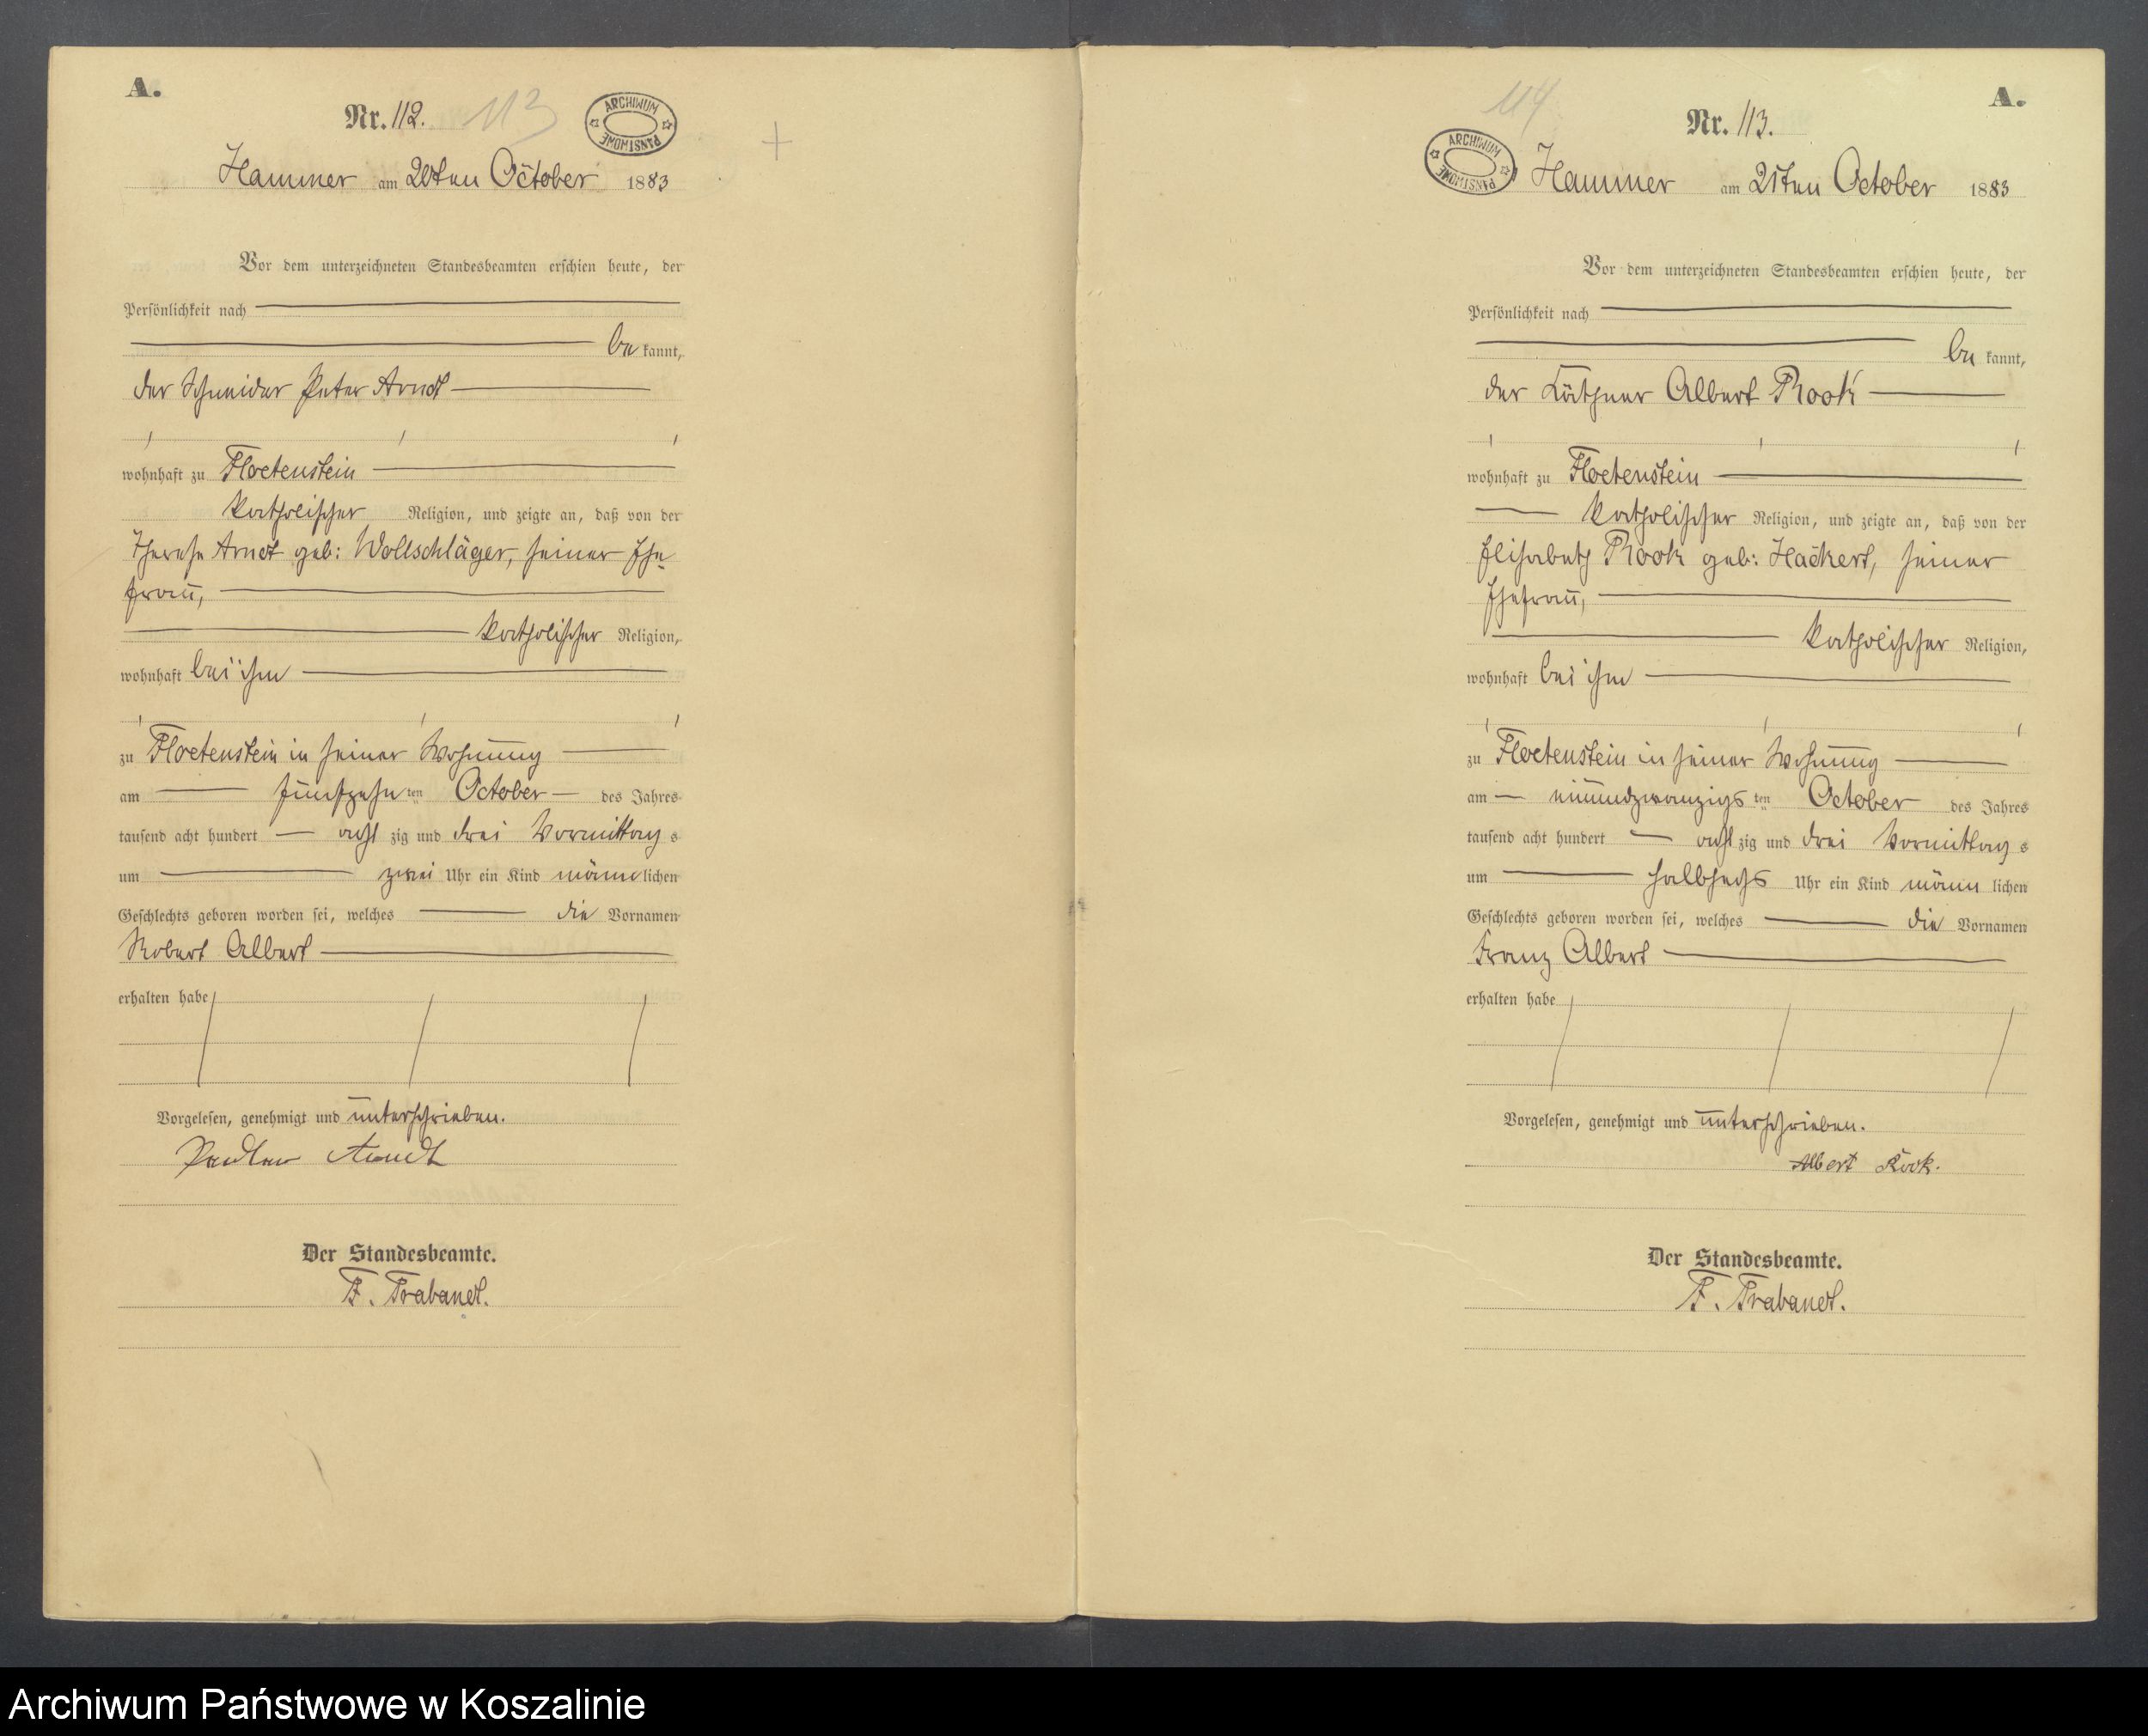 A.
Nr. 112. 113
ARCHIWUM PAŃSTWOWE
Hammer am 20ten October 1883
Vor dem unterzeichneten Standesbeamten erschien heute, der
Persönlichkeit nach
be kannt,
der Schneider Peter Arndt
wohnhaft zu Floetenstein
katholischer Religion, und zeigte an, daß von der
Therese Arndt geb: Wollschläger, seiner Ehe-
frau,
katholischer Religion,
wohnhaft bei ihm
zu Floetenstein in seiner Wohnung
am fünfzehn ten October des Jahres
tausend acht hundert acht zig und drei Vormittag s
um zwei Uhr ein Kind männ lichen
Geschlechts geboren worden sei, welches die Vornamen
Robert Albert
erhalten habe
Vorgelesen, genehmigt und unterschrieben.
Arndt
Der Standesbeamte.
F. Trabandt.
114 A.
Nr. 113.
ARCHIWUM PAŃSTWOWE
Hammer am 21ten October 1883
Vor dem unterzeichneten Standesbeamten erschien heute, der
Persönlichkeit nach
be kannt,
der Käthner Albert Rook
wohnhaft zu Floetenstein
katholischer Religion, und zeigte an, daß von der
Elisabeth Rook geb: Hackert, seiner
Ehefrau,
katholischer Religion,
wohnhaft bei ihm
zu Floetenstein in seiner Wohnung
am einundzwanzigs ten October des Jahres
tausend acht hundert acht zig und drei Vormittag s
um halbsechs Uhr ein Kind männ lichen
Geschlechts geboren worden sei, welches die Vornamen
Franz Albert
erhalten habe
Vorgelesen, genehmigt und unterschrieben.
Albert Rook.
Der Standesbeamte.
F. Trabandt.
Archiwum Państwowe w Koszalinie